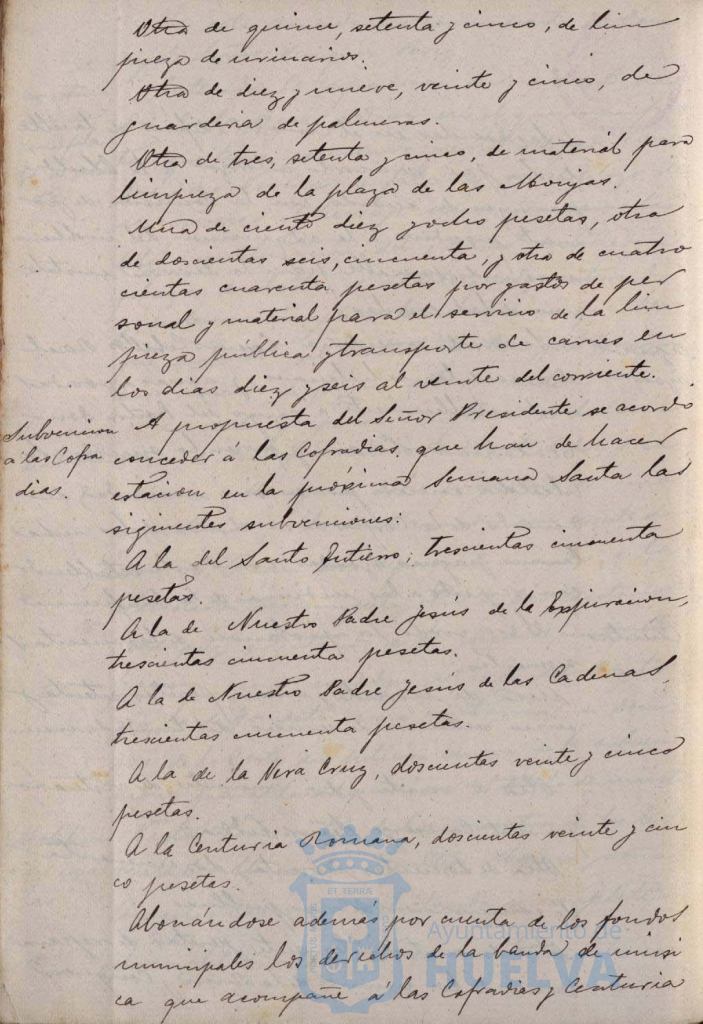 Otra de quince, setenta y cinco, de lim
pieza de urinarios.
Otra de diez y nueve, veinte y cinco, de
guarderia de palmeras.
Otra de tres, setenta y cinco, de material para
limpieza de la plaza de las Monjas.
Una de ciento diez y ocho pesetas, otra
de doscientas seis, cincuenta, y otra de cuatro
cientas cuarenta pesetas por gastos de per
sonal y material para el servicio de la lim
pieza pública y transporte de carnes en
los dias diez y seis al veinte del corriente.
Subvencion
á las Cofra
dias.
A propuesta del Señor Presidente se acordó
conceder á las Cofradias que han de hacer
estacion en la próxima Semana Santa las
siguientes subvenciones:
A la del Santo Entierro, trescientas cincuenta
pesetas.
A la de Nuestro Padre Jesús de la Expiracion,
trescientas cincuenta pesetas.
A la de Nuestro Padre Jesús de las Cadenas,
trescientas cincuenta pesetas.
A la de la Vera Cruz, doscientas veinte y cinco
pesetas.
A la Centuria Romana, doscientas veinte y cin
co pesetas.
Abonándose además por cuenta de los fondos
municipales los derechos de la banda de músi
ca que acompañe á las Cofradias y Centuria
ET TERRÆ
Ayuntamiento de
HUELVA